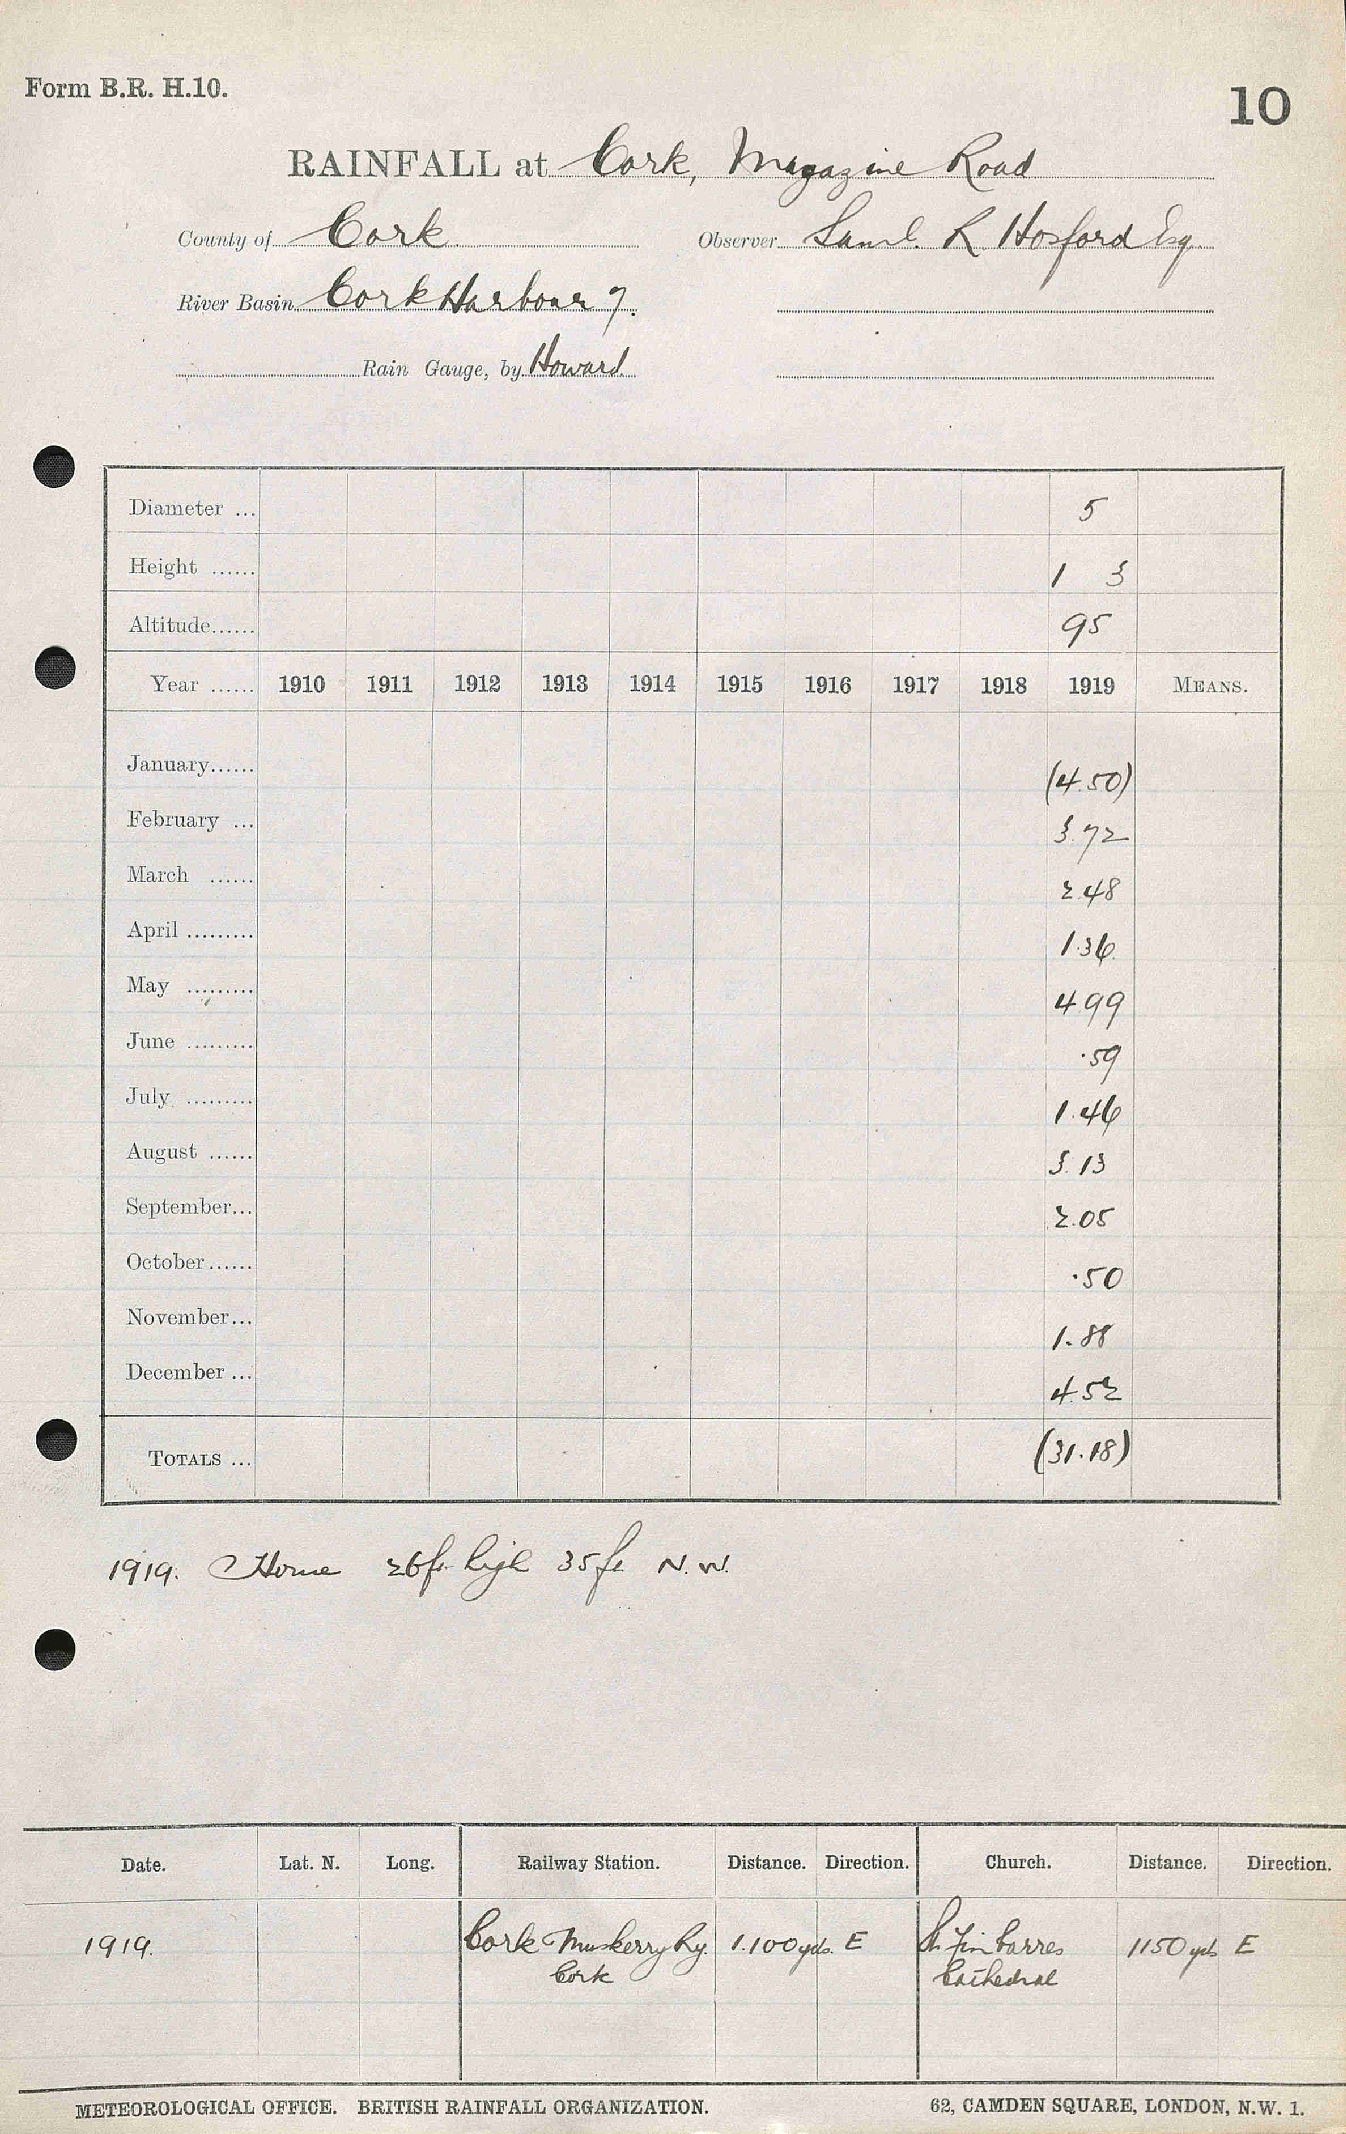 Form B.R. H.10.
10
RAINFALL at Cork, Magazine Road
County of Cork Observer Saml. R Hosford Esq
River Basin Cork Harbour 7.
Rain Gauge, by Howard
Diameter ... 5
Height ...... 1 3
Altitude...... 95
Year ...... 1910 1911 1912 1913 1914 1915 1916 1917 1918 1919 MEANS.
January...... (4.50)
February ... 3.72
March ...... 2.48
April ......... 1.36
May ......... 4.99
June ......... .59
July ......... 1.46
August ...... 3.13
September... 2.05
October...... .50
November... 1.88
December ... 4.52
TOTALS ... (31.18)
1919. Home 26ft high 35ft N.W.
Date. Lat. N. Long. Railway Station. Distance. Direction. Church. Distance. Direction.
1919. Cork Muskerry Ry. 1.100yds. E St. Finbarres 1150 yds E
Cork Cathedral
METEOROLOGICAL OFFICE. BRITISH RAINFALL ORGANIZATION. 62, CAMDEN SQUARE, LONDON, N.W. 1.